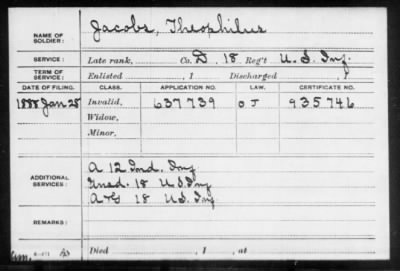 NAME OF SOLDIER: Jacobs, Theophilus
SERVICE: Late rank, Co. D, 18 Reg't U. S. Inf.
TERM OF SERVICE: Enlisted , 1 Discharged , 1
DATE OF FILING. CLASS. APPLICATION NO. LAW. CERTIFICATE NO.
1888 Jan 28 Invalid, 637739 O J 935746
Widow,
Minor.
ADDITIONAL SERVICES: A 12 Ind. Inf
Unad. 18 U S Inf
A & G 18 U. S Inf
REMARKS:
Died , 1 , at